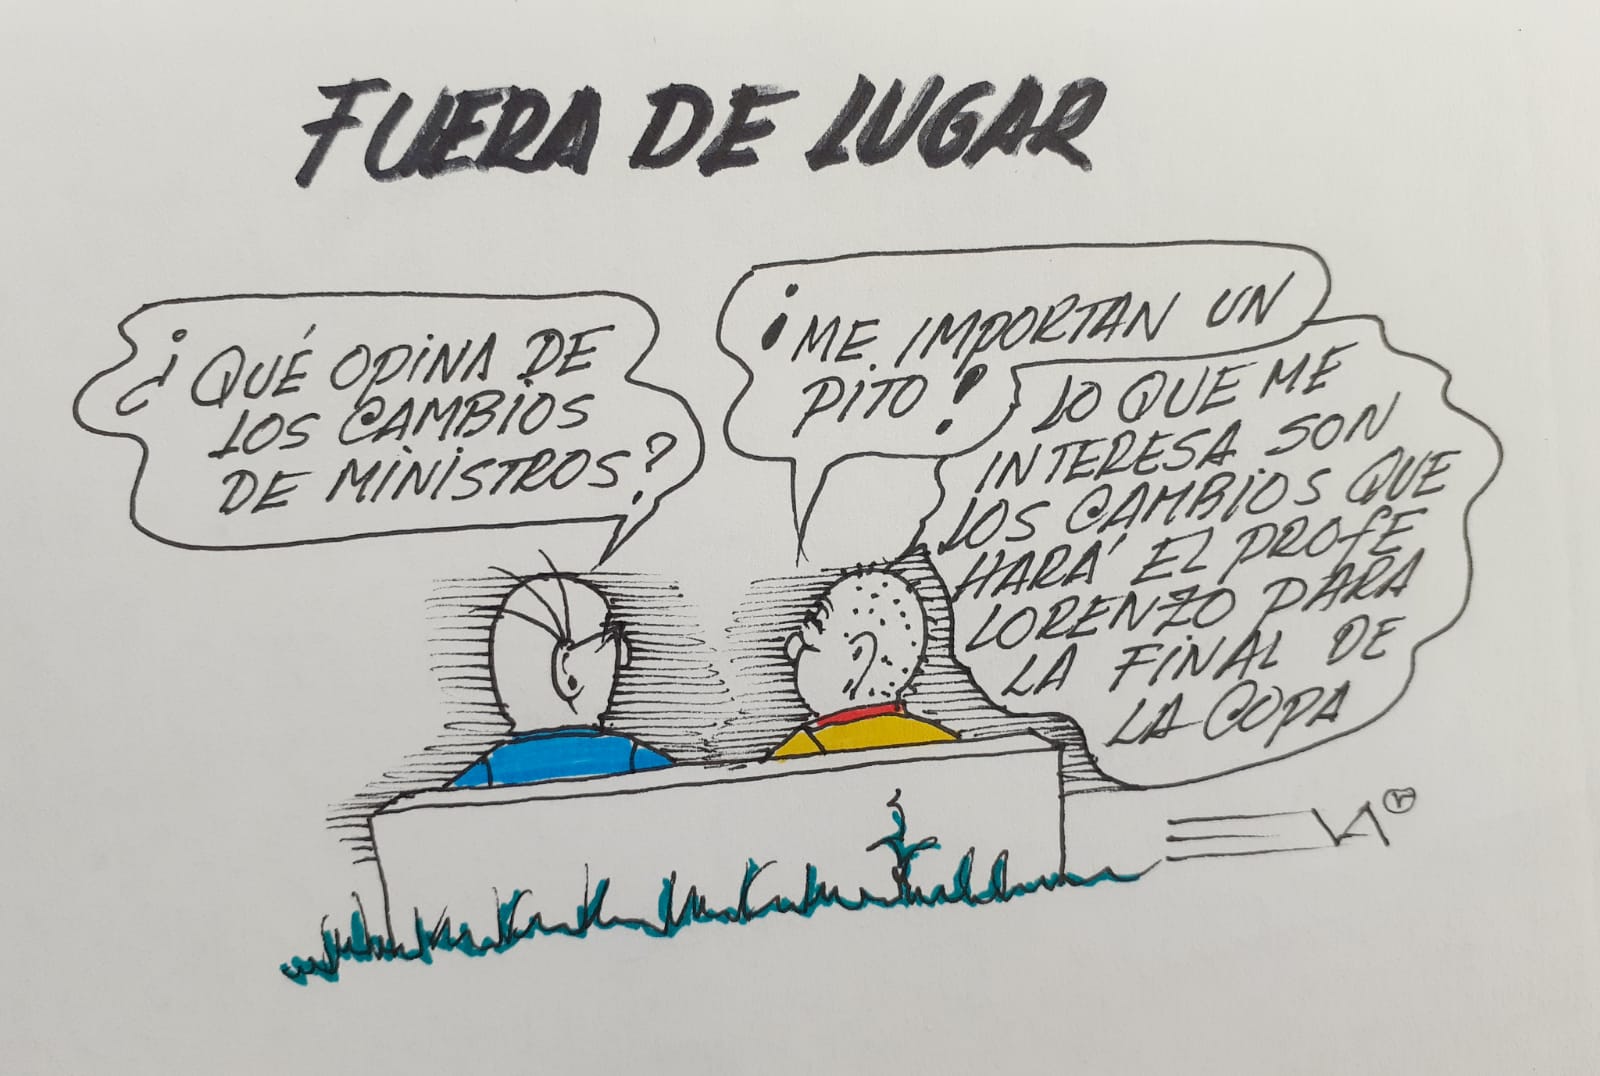 FUERA DE LUGAR
¿QUÉ OPINA DE
LOS CAMBIOS
DE MINISTROS?
¡ME IMPORTAN UN
PITO!
LO QUE ME
INTERESA SON
LOS CAMBIOS QUE
HARÁ EL PROFE
LORENZO PARA
LA FINAL DE
LA COPA